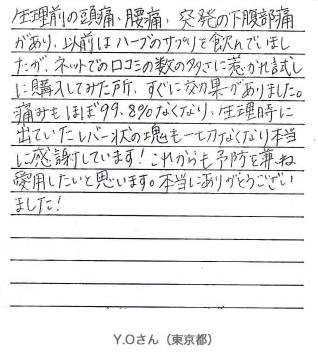 生理前の頭痛、腰痛、突発の下腹部痛
があり、以前はハーブのサプリを飲んでいまし
たが、ネットでの口コミの数の多さに惹かれ試し
に購入してみた所、すぐに効果がありました。
痛みもほぼ99.8%なくなり、生理時に
出ていたレバー状の塊も一切なくなり本当
に感謝しています！これからも予防を兼ね
愛用したいと思います。本当にありがとうござい
ました！
Y.Oさん（東京都）